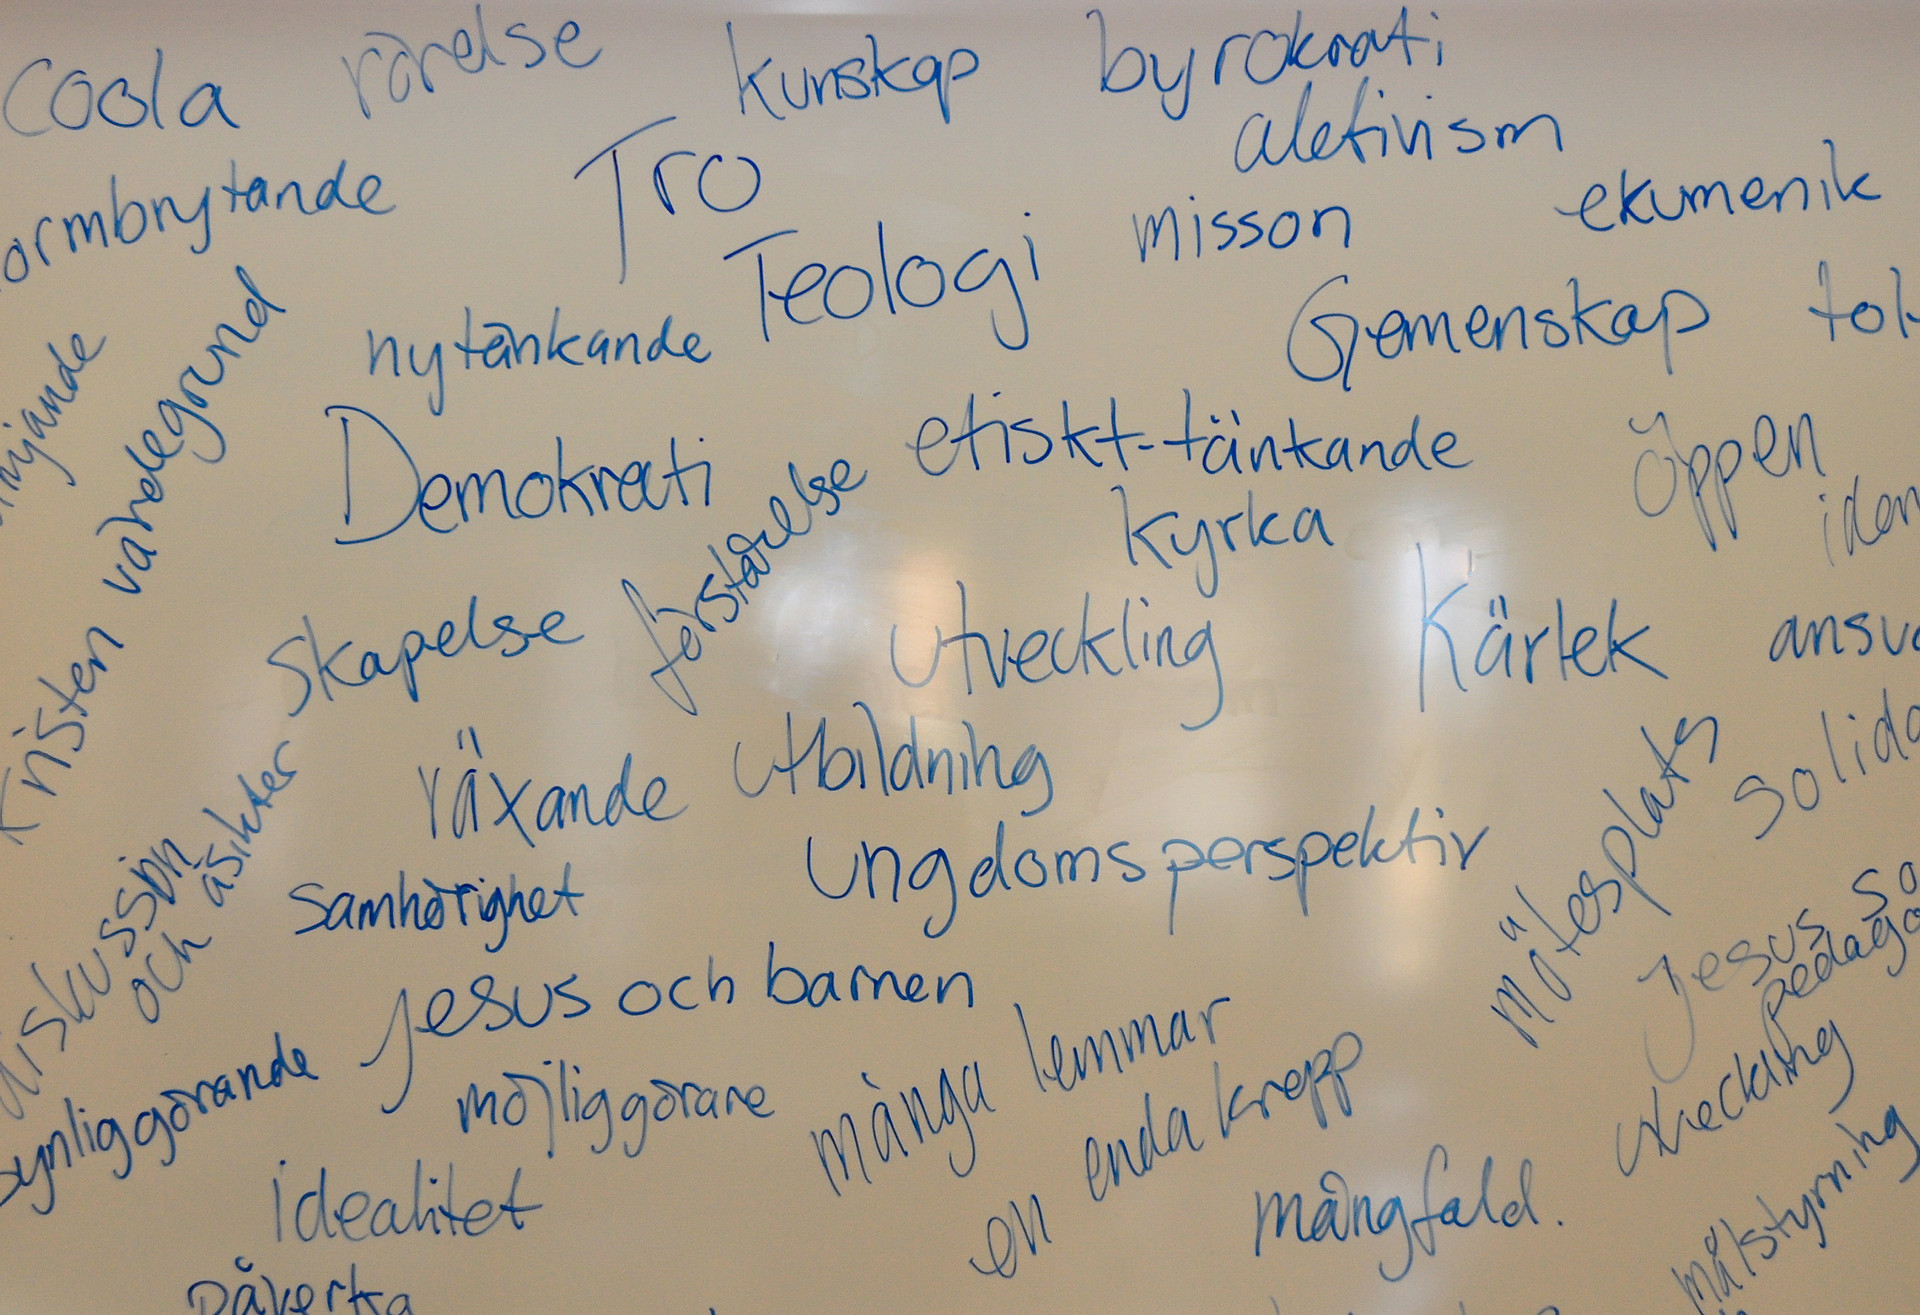 Coola rörelse kunskap byrokrati
aktivism
ormbrytande Tro
Teologi misson ekumenik
nytänkande Gemenskap tol
Kristen värdegrund
Demokrati etiskt-tänkande öppen
förståelse kyrka iden
Skapelse utveckling Kärlek ansva
växande utbildning
mötesplats solida
diskussion
och åsikter
Samhörighet ungdomsperspektiv
Jesus so
pedago
Jesus och barnen
synliggörande möjliggörare många lemmar
en enda kropp
utveckling
idealitet mångfald.
målstyrning
Påverka